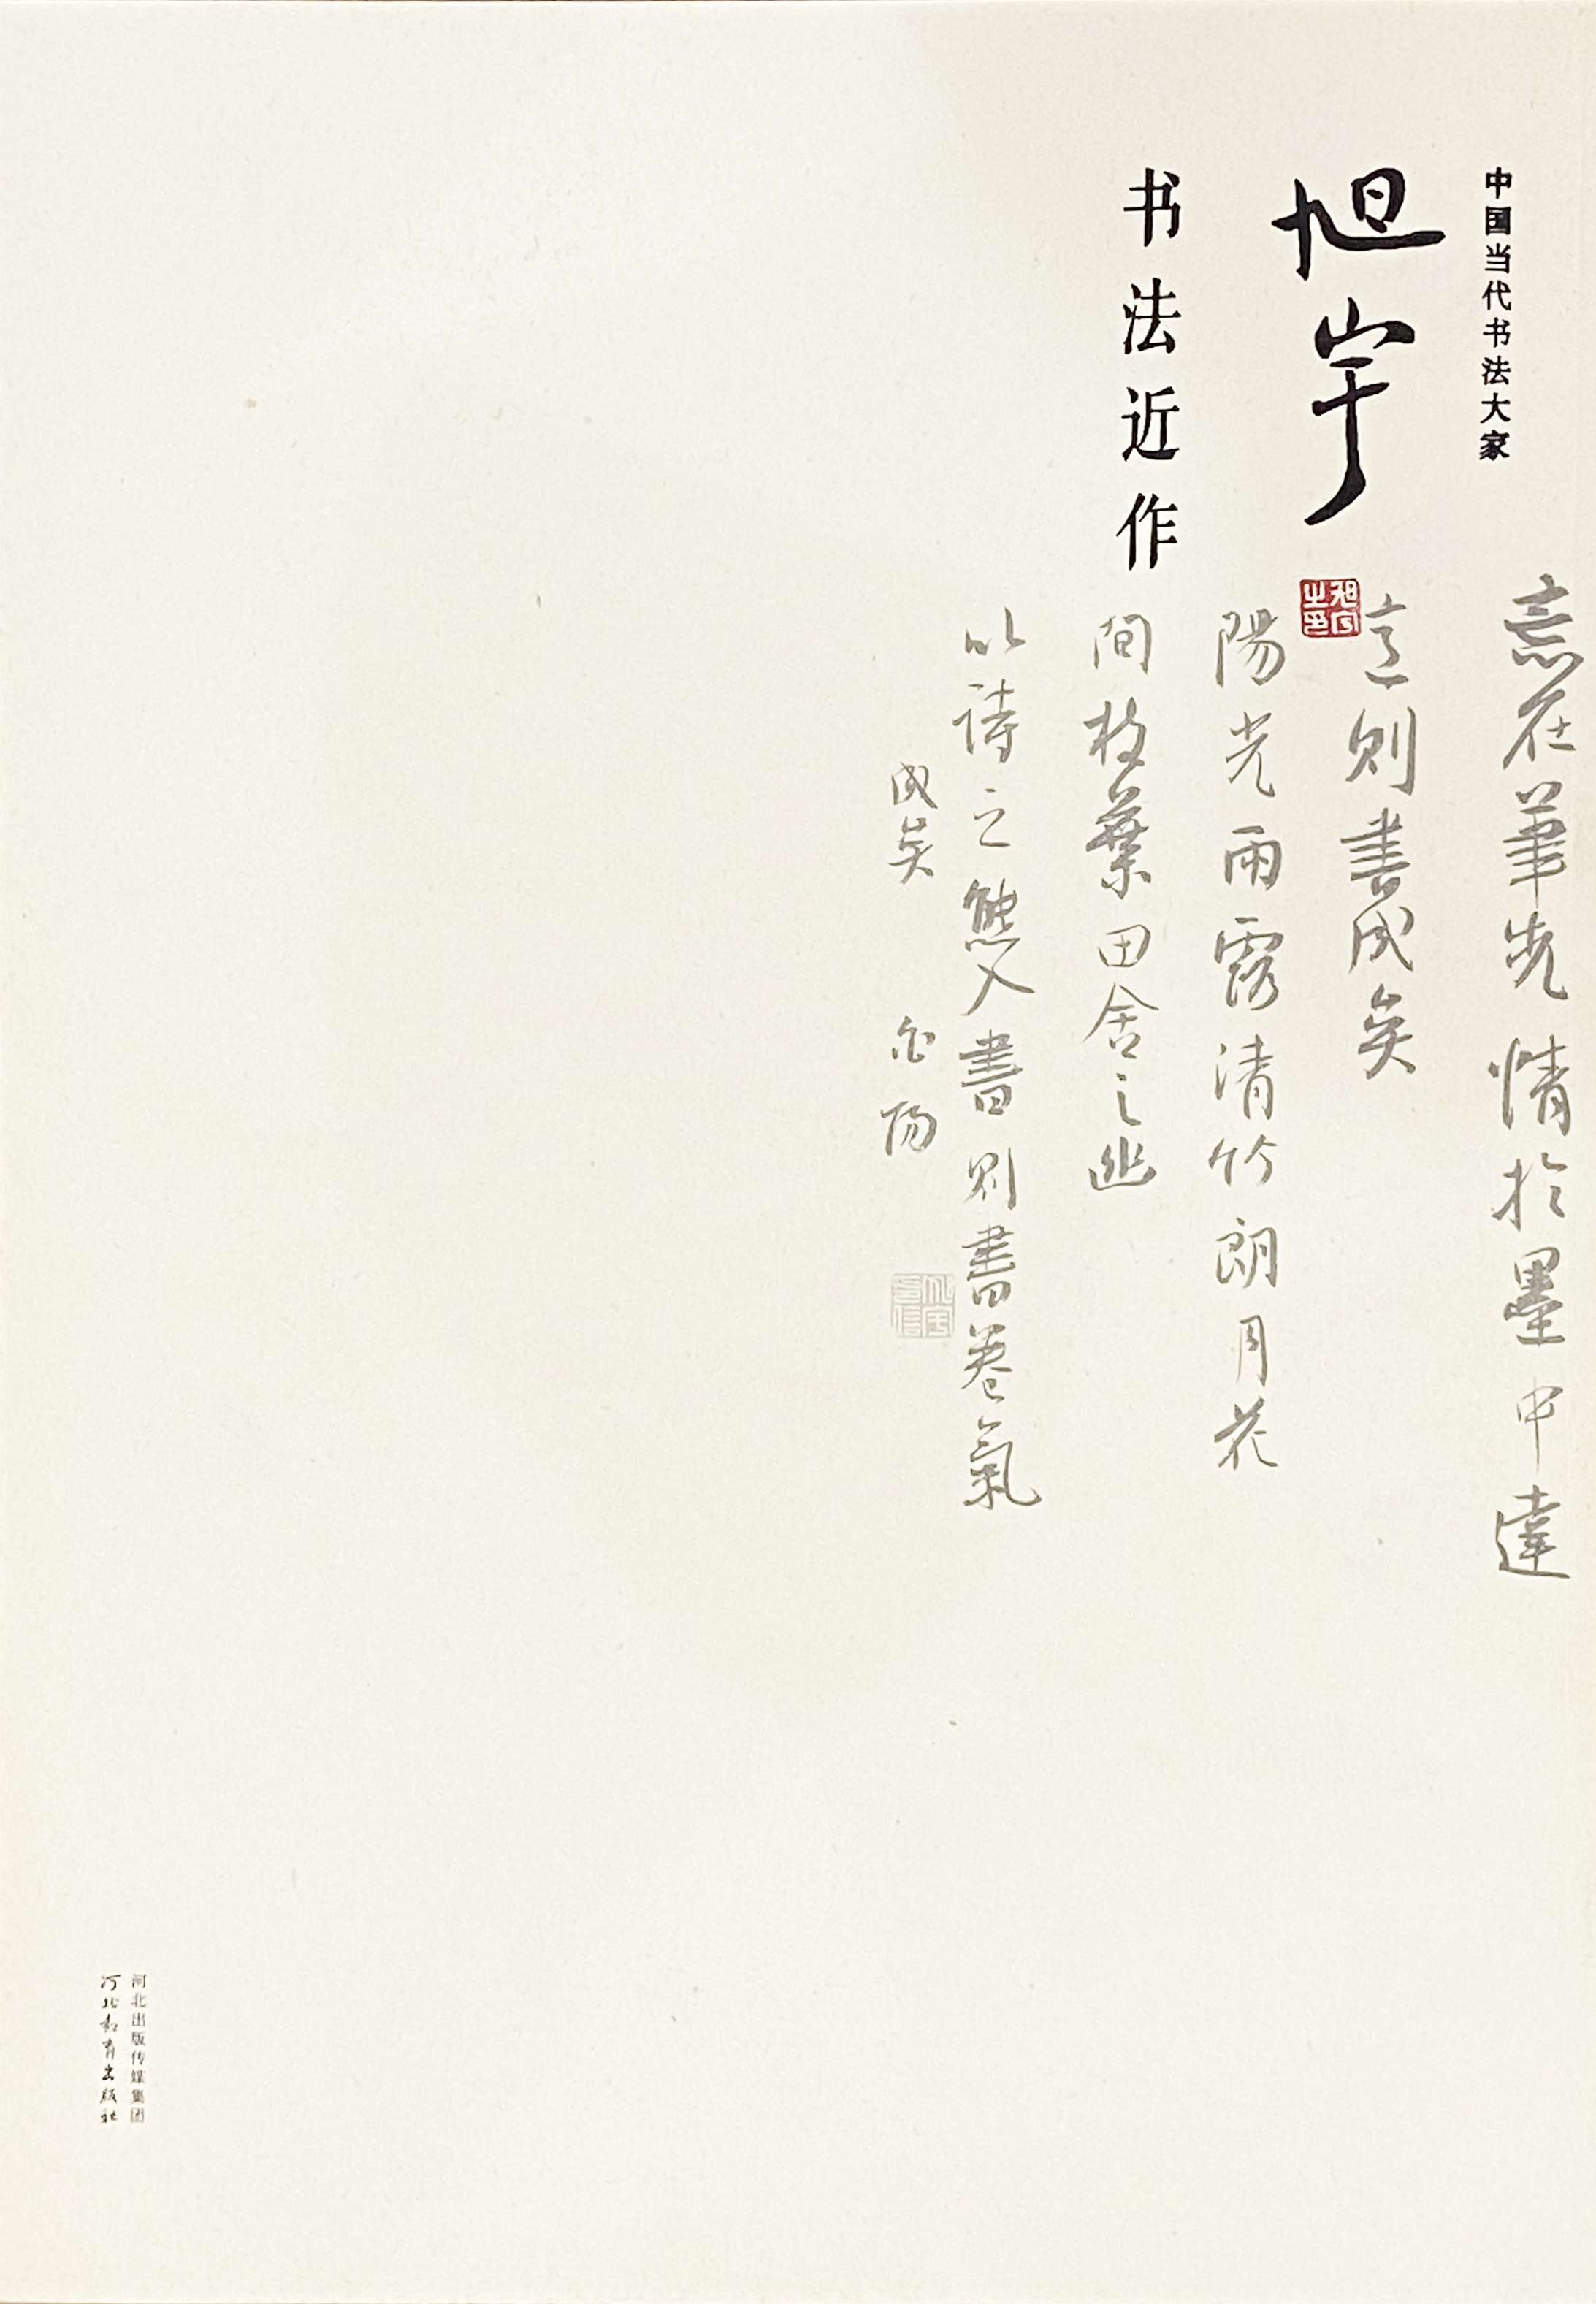 中国当代书法大家
旭宇
书法近作
意在筆先情於墨中達
意則書成矣
陽光雨露清竹朗月花
間枝葉田舍之幽
以詩之態入書則書卷氣
成矣
河北出版传媒集团
河北教育出版社